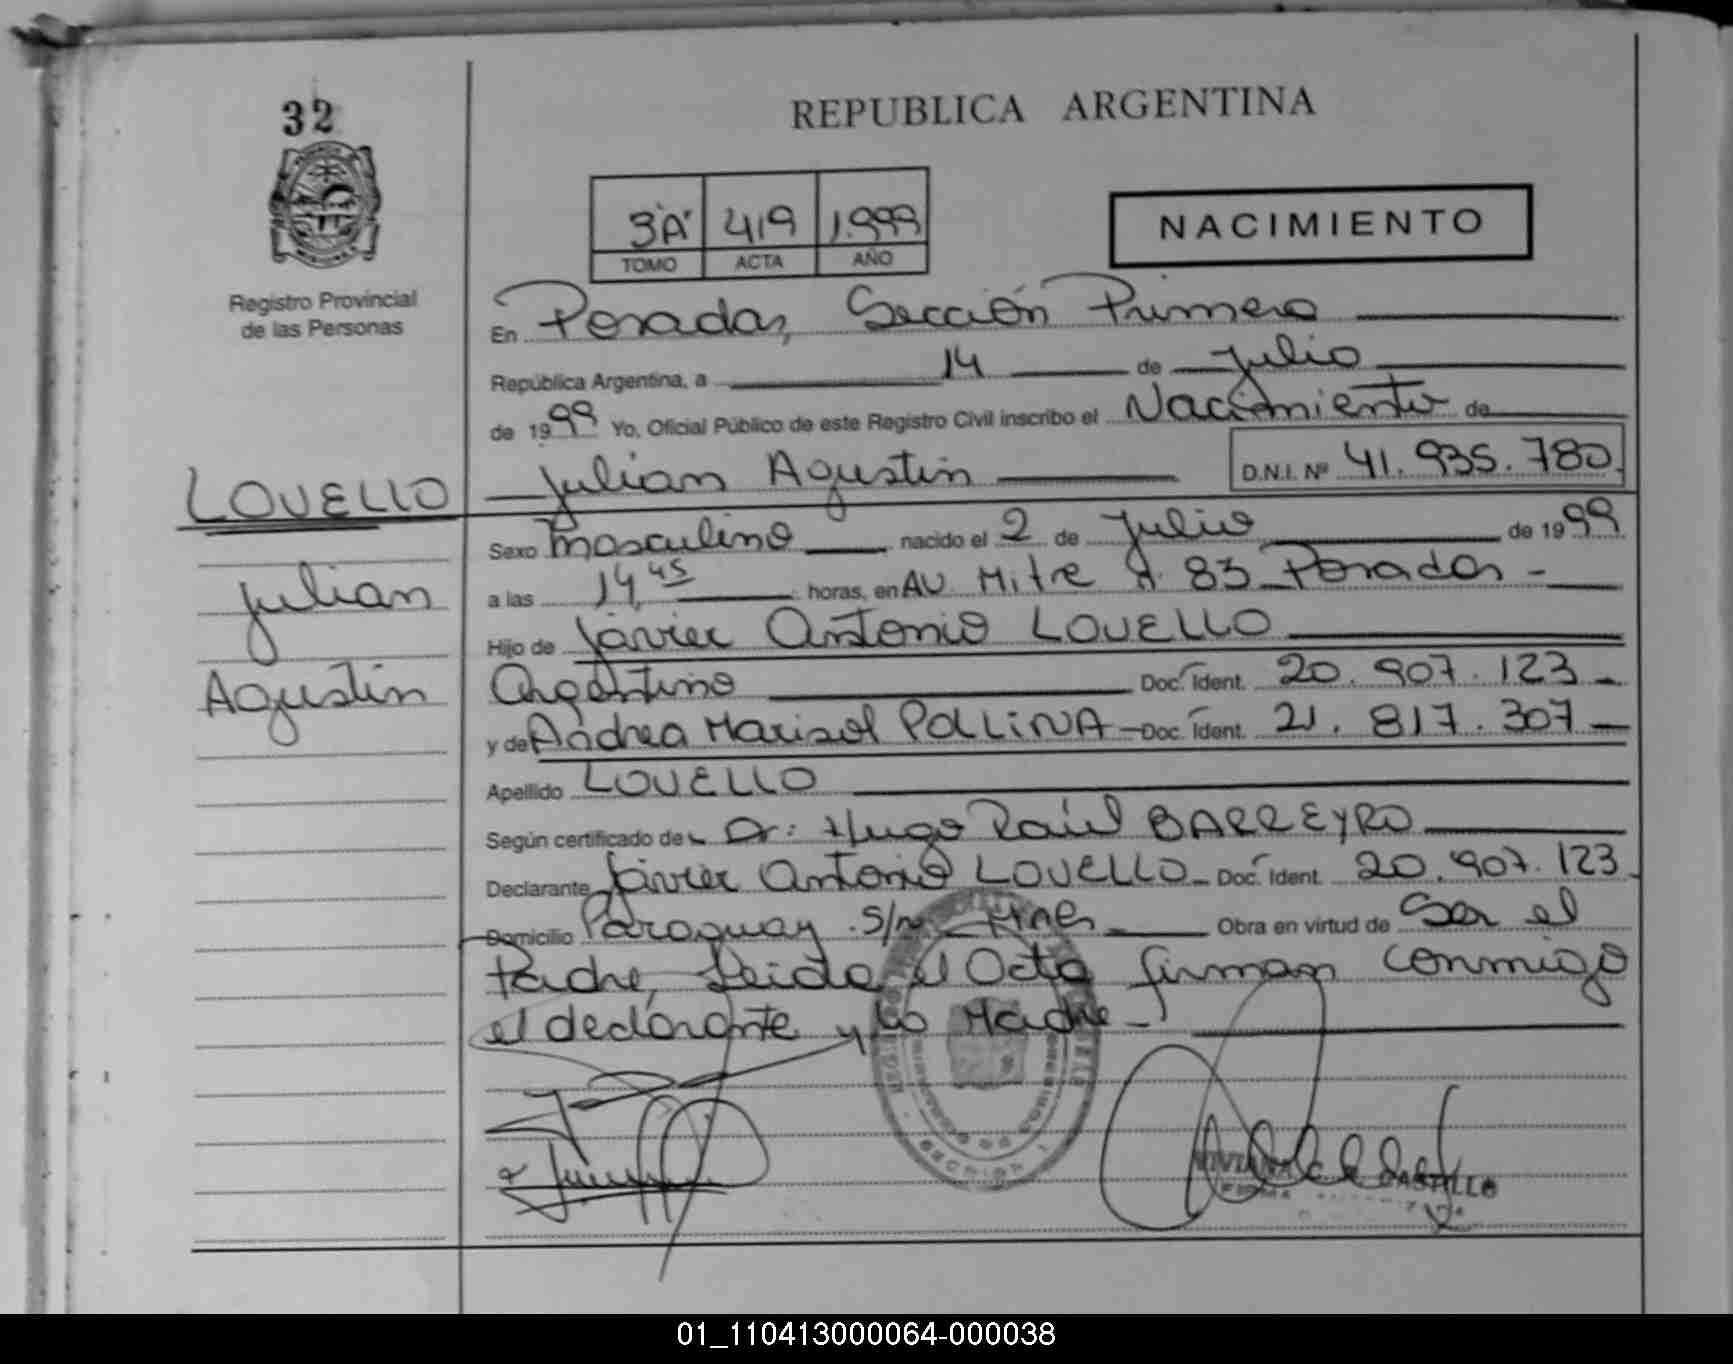 32
REPUBLICA ARGENTINA
3"A" 419 1.999
TOMO ACTA AÑO
NACIMIENTO
Registro Provincial
de las Personas
En Posadas, Sección Primera
República Argentina, a 14 de Julio
de 1999 Yo, Oficial Público de este Registro Civil inscribo el Nacimiento de
Julian Agustin D.N.I. Nº 41.935.780
LOVELLO
Julian
Agustin
Sexo masculino nacido el 2 de Julio de 1999
a las 14,45 horas, en AV. Mitre Nº 83 Posadas -
Hijo de Javier Antonio LOVELLO
Argentino Doc. Ident. 20.907.123 -
y de Andrea Marisol POLLINA - Doc. Ident. 21.817.307 -
Apellido LOVELLO
Según certificado de Dr: Hugo Raúl BARREYRO
Declarante Javier Antonio LOVELLO - Doc. Ident. 20.907.123
Domicilio Paraguay S/n Mnes Obra en virtud de Ser el
Padre, Leida el Acta firman conmigo
el declarante y la Madre -
VIVIANA CASTILLO
01_110413000064-000038